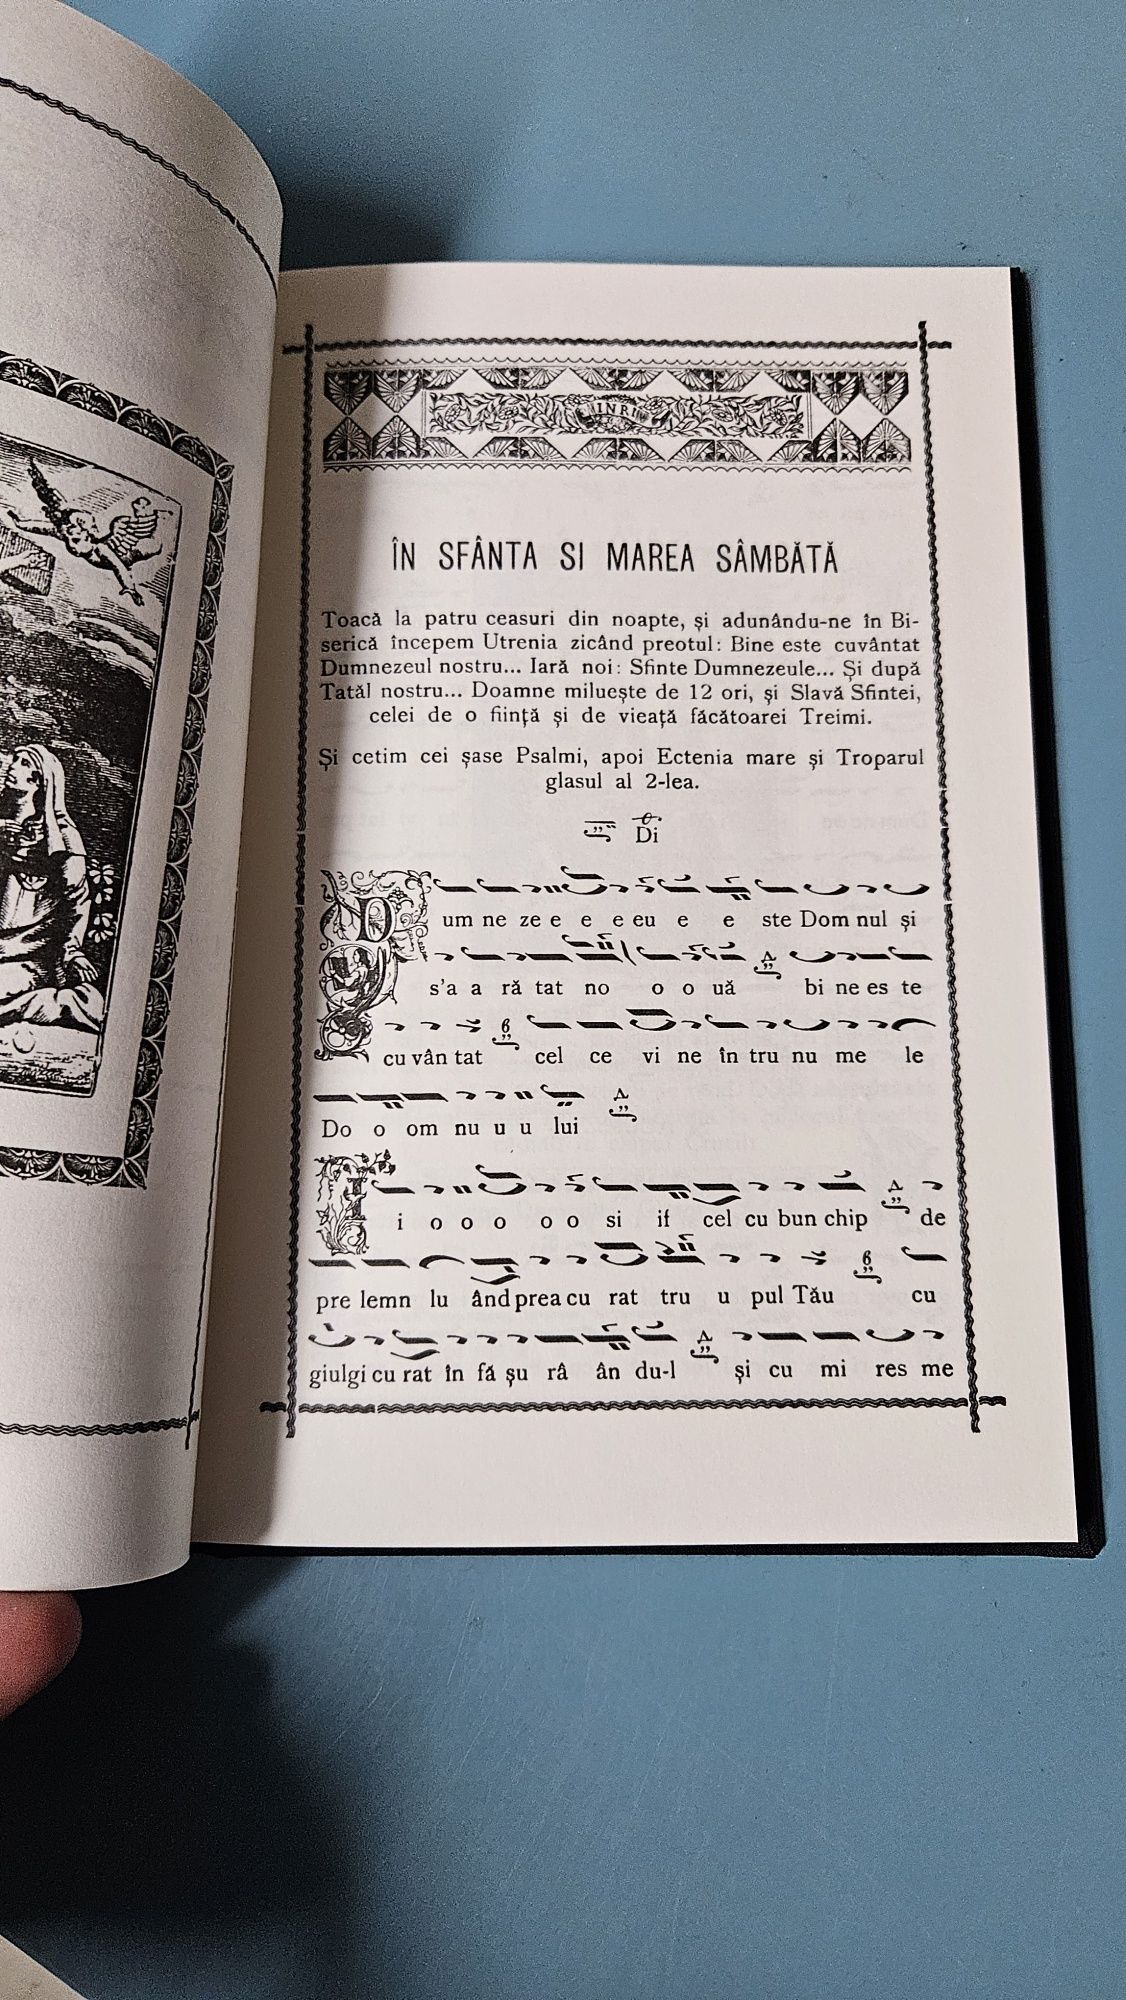 INRI
ÎN SFÂNTA SI MAREA SÂMBĂTĂ
Toacă la patru ceasuri din noapte, și adunându-ne în Bi-
serică începem Utrenia zicând preotul: Bine este cuvântat
Dumnezeul nostru... Iară noi: Sfinte Dumnezeule... Și după
Tatăl nostru... Doamne miluește de 12 ori, și Slavă Sfintei,
celei de o ființă și de vieață făcătoarei Treimi.
Și cetim cei șase Psalmi, apoi Ectenia mare și Troparul
glasul al 2-lea.
Di
D um ne ze e e e eu e e ste Dom nul și
s'a a ră tat no o o uă bi ne es te
cu vân tat cel ce vi ne în tru nu me le
Do o om nu u u lui
I i o o o o o si if cel cu bun chip de
pre lemn lu ând prea cu rat tru u pul Tău cu
giulgi cu rat în fă șu râ ân du-l și cu mi res me